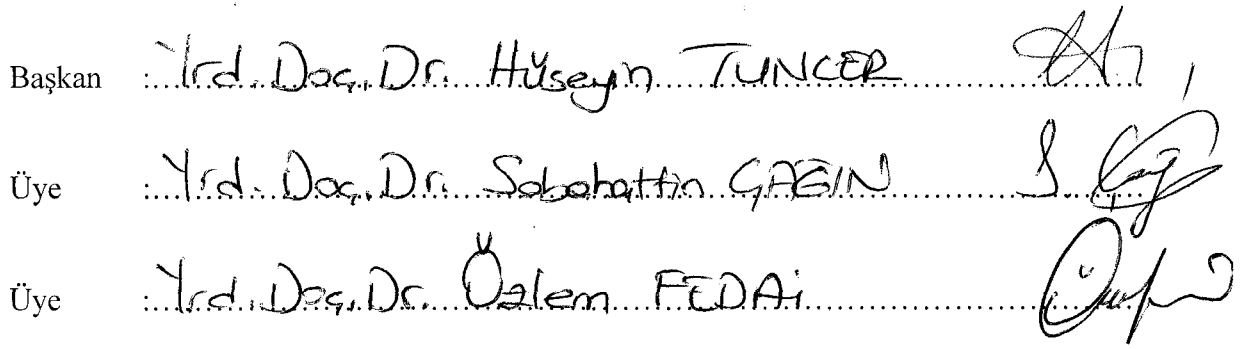 Başkan : Yrd. Doç. Dr. Hüseyin TUNCER
Üye : Yrd. Doç. Dr. Sabahattin ÇAĞIN
Üye : Yrd. Doç. Dr. Özlem FEDAİ